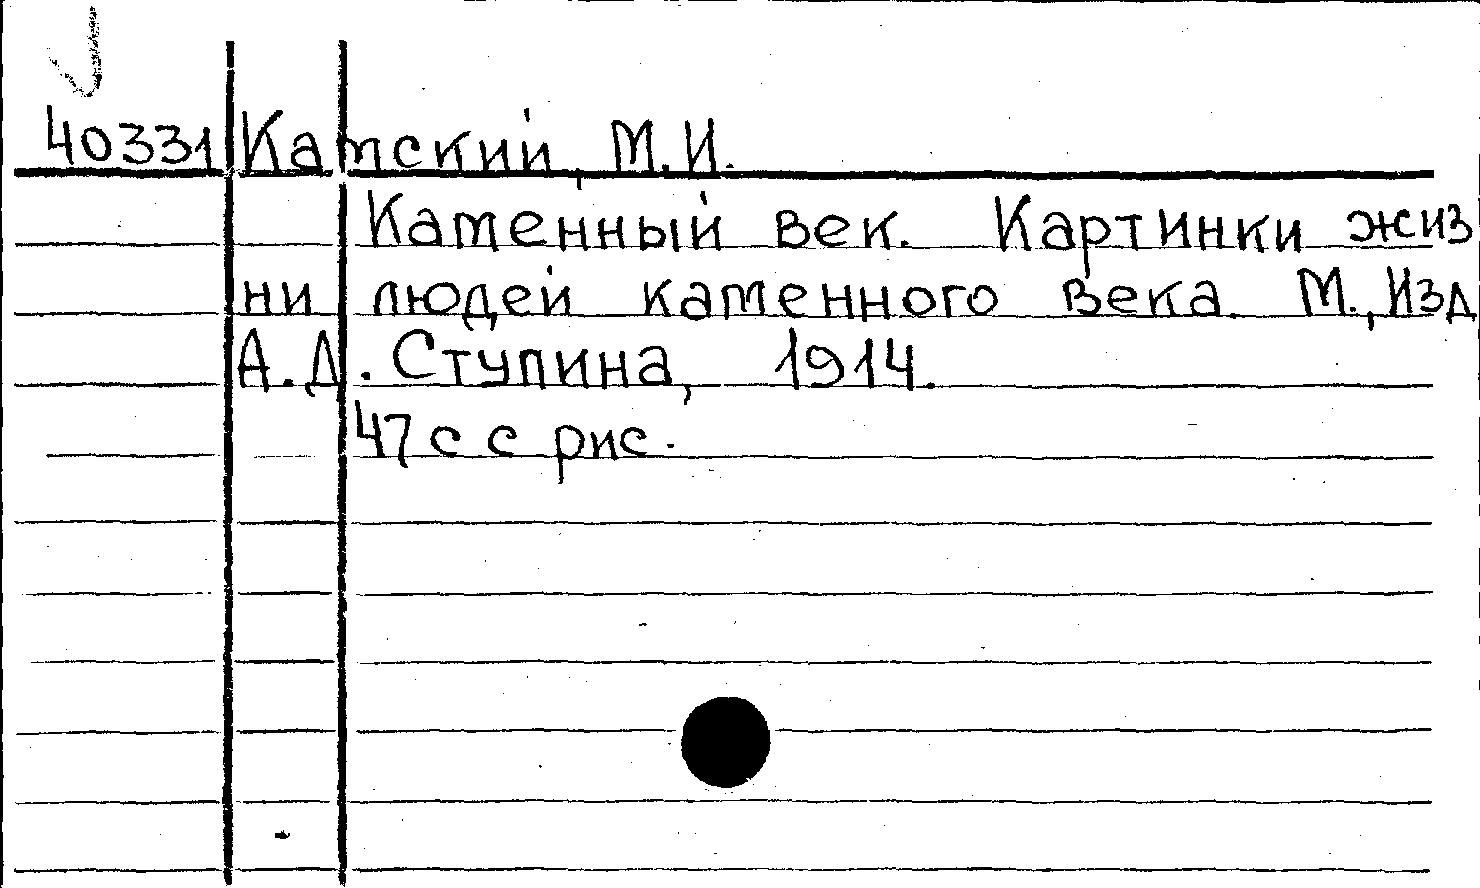 40331 Камский, М.И.
Каменный век. Картинки жиз
ни людей каменного века. М., Изд
А.Д. Ступина, 1914.
47 с с рис.